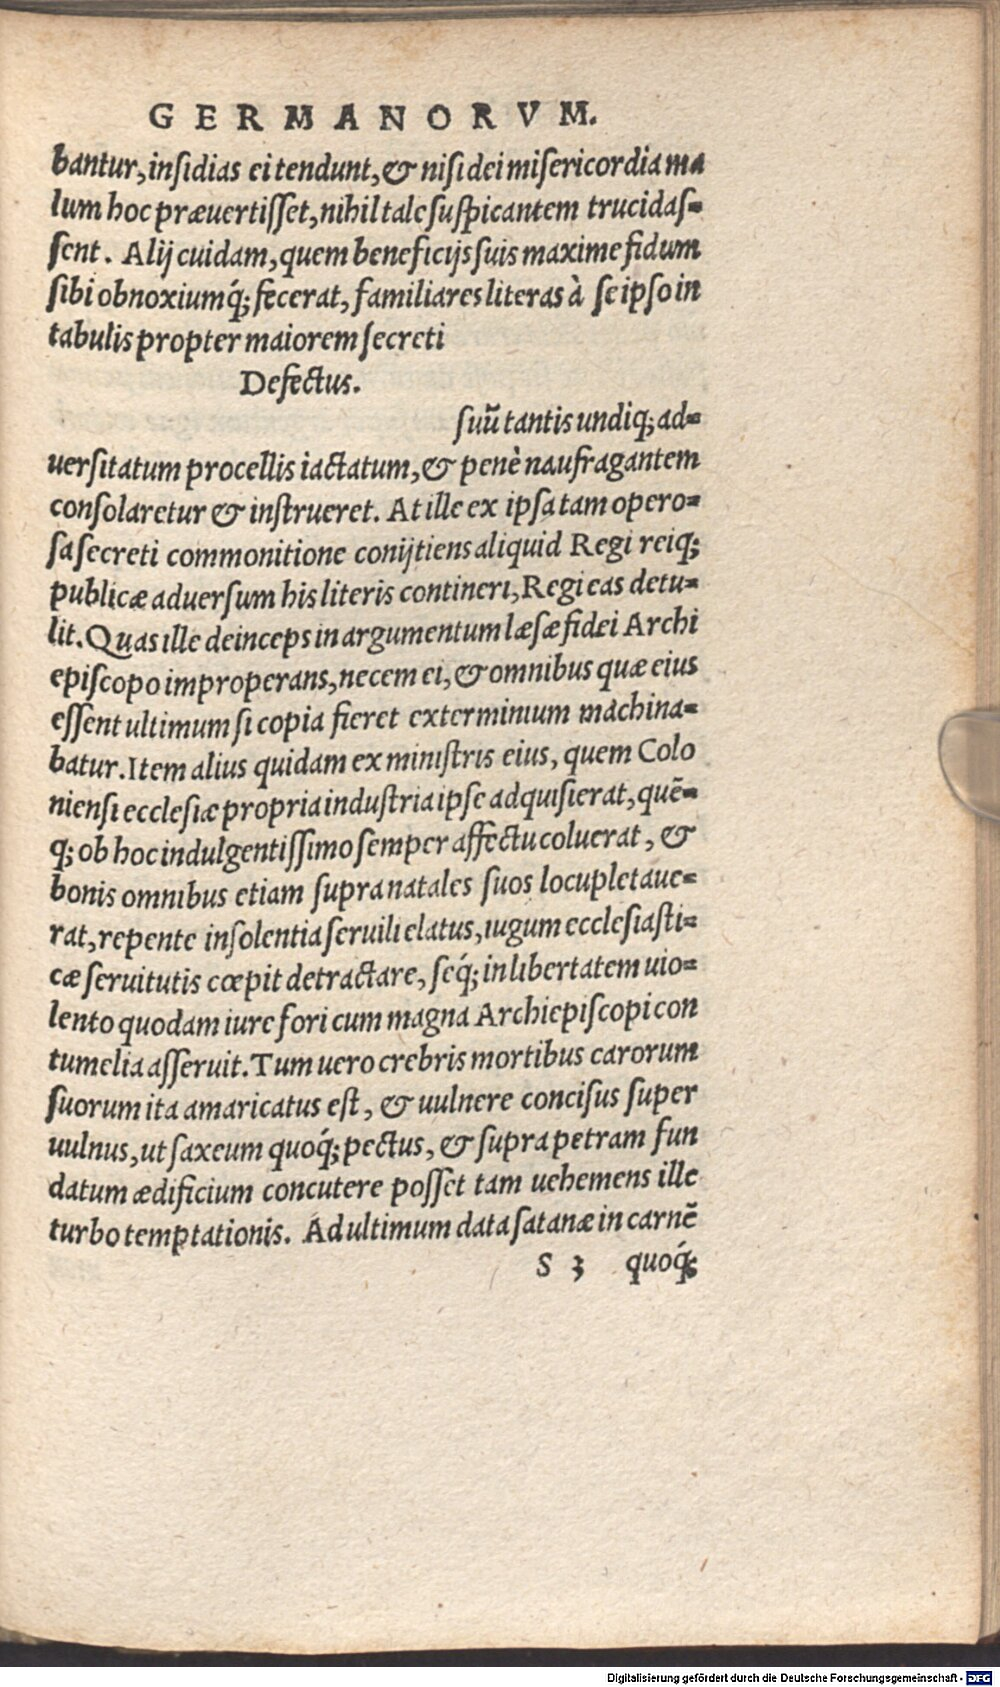 GERMANORVM.
bantur, insidias ei tendunt, & nisi dei misericordia ma
lum hoc præuertisset, nihil tale suspicantem trucidas=
sent. Alij cuidam, quem beneficijs suis maxime fidum
sibi obnoxiumq́; fecerat, familiares literas à se ipso in
tabulis propter maiorem secreti
Defectus.
suū tantis undiq; ad=
uersitatum procellis iactatum, & penè naufragantem
consolaretur & instrueret. At ille ex ipsa tam opero=
sa secreti commonitione conijtiens aliquid Regi reiq;
publicæ aduersum his literis contineri, Regi eas detu=
lit. Quas ille deinceps in argumentum læsæ fidei Archi
episcopo improperans, necem ei, & omnibus quæ eius
essent ultimum si copia fieret exterminium machina=
batur. Item alius quidam ex ministris eius, quem Colo
niensi ecclesiæ propria industria ipse adquisierat, quē=
q; ob hoc indulgentissimo semper affectu coluerat, &
bonis omnibus etiam supra natales suos locupletaue=
rat, repente insolentia seruili elatus, iugum ecclesiasti=
cæ seruitutis cœpit detractare, seq́; in libertatem uio=
lento quodam iure fori cum magna Archiepiscopi con
tumelia asseruit. Tum uero crebris mortibus carorum
suorum ita amaricatus est, & uulnere concisus super
uulnus, ut saxeum quoq́; pectus, & supra petram fun
datum ædificium concutere posset tam uehemens ille
turbo temptationis. Ad ultimum data satanæ in carnē
S 3 quoq́;
Digitalisierung gefördert durch die Deutsche Forschungsgemeinschaft - DFG